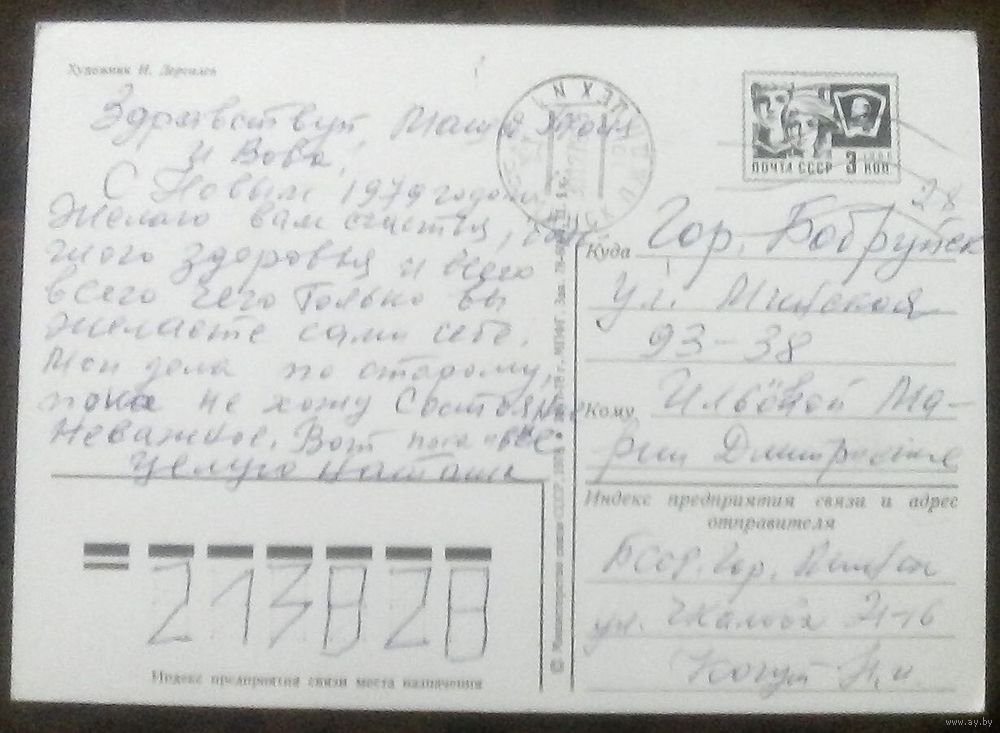 Художник И. Дергилев
Здравствуй, Маша, Коля
и Вова,
С Новым 1979 годом.
Желаю вам счастья,
ного здоровья и всего
всего чего только вы
желаете сами себе.
Мои дела по старому,
пока не хожу Состояние
Неважное. Вот пока все
целую Наташа
ПОЧТА СССР 3 КОП
28
Куда Гор. Бобруйск
ул. Минская
93-38
Кому Ильёвой Ма-
рии Дмитриевне
Индекс предприятия связи и адрес
отправителя
БССР. Гор.
ул. Чкалова
Когут Н.И.
213828
Индекс предприятия связи места назначения
© Министерство связи СССР. 1978
www.ay.by